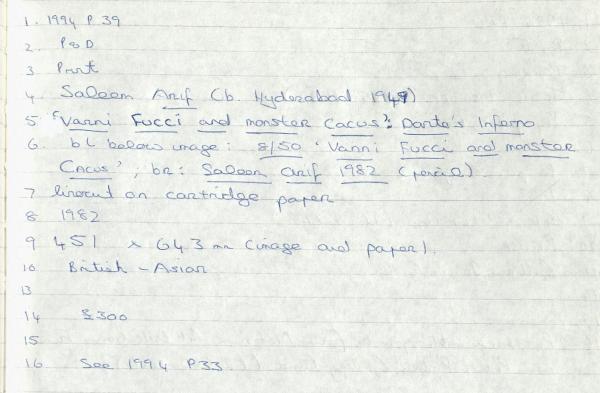 1. 1994 P 39
2. P&D
3 Print
4 Saleem Arif (b. Hyderabad 1949)
5 'Vanni Fucci and monster Cacus': Dante's Inferno
6. bl below image: 8/50 'Vanni Fucci and monster
Cacus', br: Saleem Arif 1982 (pencil).
7 linocut on cartridge paper
8 1982
9 451 x 643 mm (image and paper).
10 British - Asian
13
14 £300
15
16 See 1994 P33